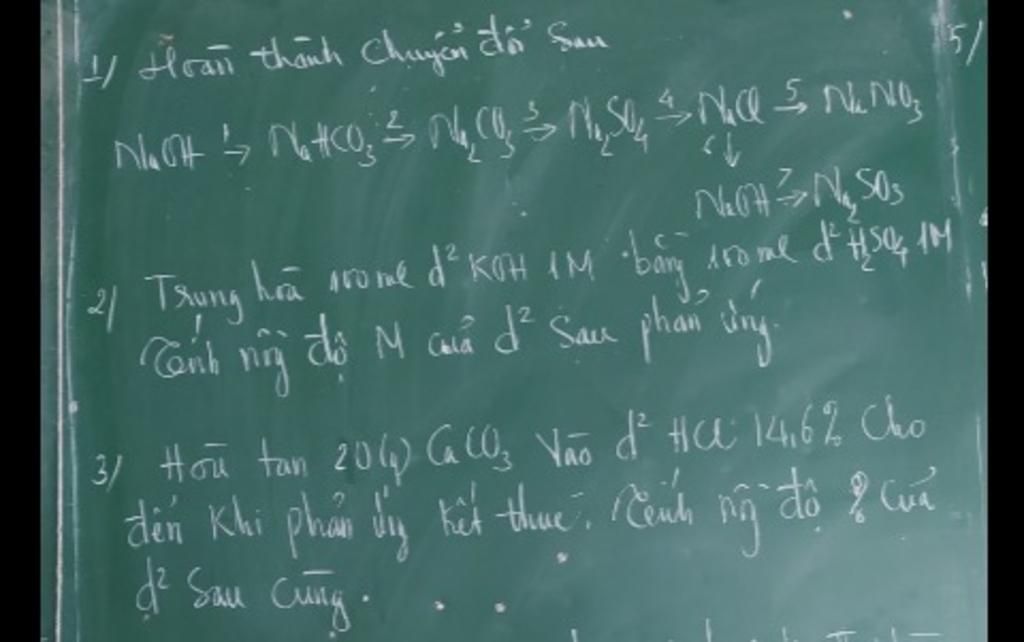 1/ Hoàn thành chuyển đổi sau
NaOH 1→ NaHCO3 2→ Na2CO3 3→ Na2SO4 4→ NaCl 5→ NaNO3
6↓
NaOH 7→ Na2SO3
2/ Trung hoà 100ml d² KOH 1M bằng 100ml d² H2SO4 1M
Tính nồng độ M của d² sau phản ứng.
3/ Hoà tan 20(g) CaCO3 vào d² HCl 14,6% cho
đến khi phản ứng kết thúc. Tính nồng độ % của
d² sau cùng.
5/